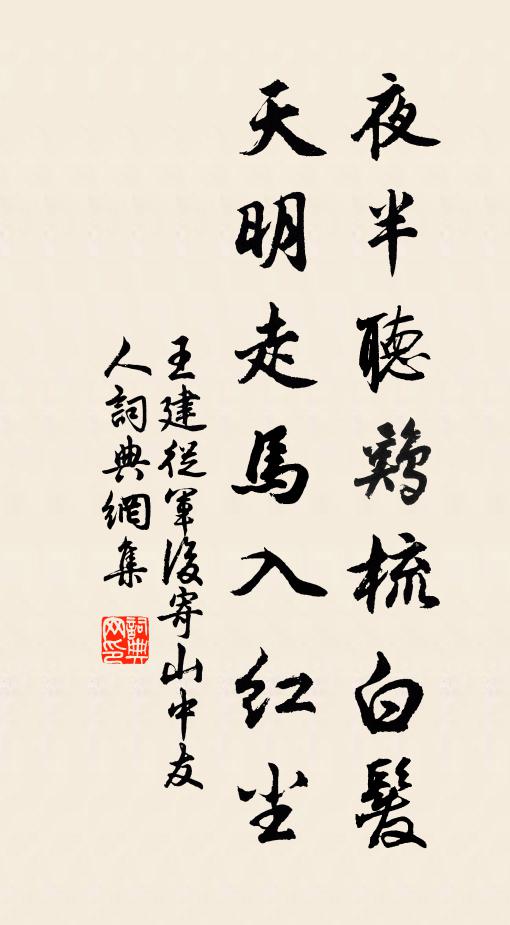 夜半聽鷄梳白髮
天明走馬入红尘
王建從軍後寄山中友
人詞典網集
詞典网印